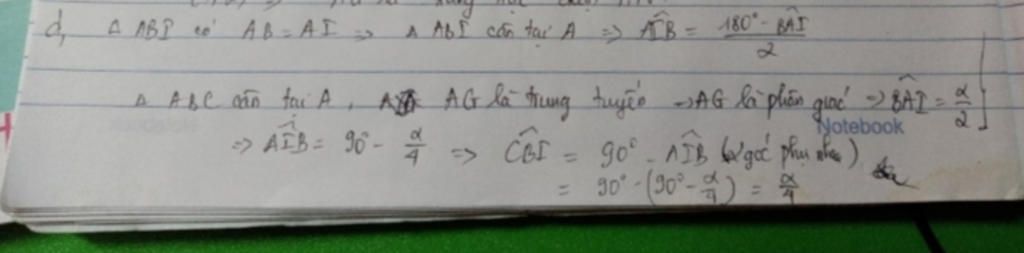 d, Δ ABI có AB = AI => Δ ABI cân tại A => AIB = 180° - BAI / 2
Δ ABC cân tại A, AG là trung tuyến → AG là phân giác => BAI = α/2
Notebook
=> AIB = 90° - α/4 => CBI = 90° - AIB (2 góc phụ nhau)
= 90° - (90° - α/4) = α/4